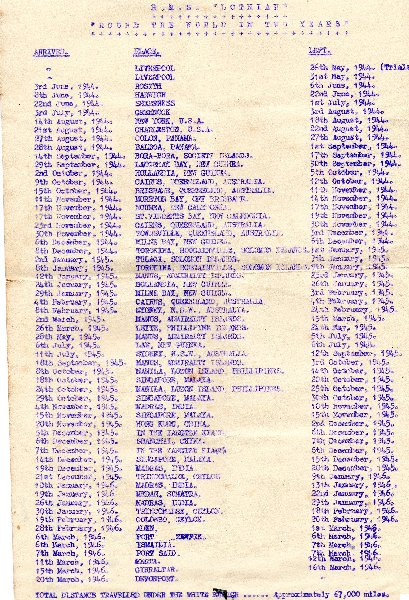 H.M.S. "LOTHIAN"
"ROUND THE WORLD IN TWO YEARS"
ARRIVED. PLACE. LEFT.
LIVERPOOL 26th May, 1944. (Trials
LIVERPOOL 31st May, 1944.
3rd June, 1944. ROSYTH 6th June, 1944.
8th June, 1944. HARWICH 22nd June, 1944.
22nd June, 1944. SHEERNESS 1st July, 1944.
3rd July, 1944. GREENOCK August, 1944.
14th August, 1944. NEW YORK, U.S.A. 18th August, 1944.
21st August, 1944. CHARLESTON, U.S.A. 22nd August, 1944.
27th August, 1944. COLON, PANAMA. 27th August, 1944.
28th August, 1944. BALBOA, PANAMA. 1st September, 1944.
14th September, 1944. BORA-BORA, SOCIETY ISLANDS. 17th September, 1944.
September, 1944. BAY, NEW GUINEA. 30th September, 1944.
2nd October, 1944. HOLLANDIA, NEW GUINEA. 5th October, 1944.
9th October, 1944. CAIRNS, QUEENSLAND, AUSTRALIA. 12th October, 1944.
15th October, 1944. BRISBANE, QUEENSLAND, AUSTRALIA. November, 1944.
11th November, 1944. MORETON BAY, OFF BRISBANE. November, 1944.
17th November, 1944. NOUMEA, NEW CALEDONIA. November, 1944.
17th November, 1944. ST. VINCENTS BAY, NEW CALEDONIA. 19th November, 1944.
23rd November, 1944. CAIRNS, QUEENSLAND, AUSTRALIA. November, 1944.
December, 1944. TOWNSVILLE, QUEENSLAND, AUSTRALIA. December, 1944.
6th December, 1944. MILNE BAY, NEW GUINEA. 6th December, 1944.
8th December, 1944. TOROKINA, BOUGAINVILLE, SOLOMON ISLANDS. January, 1945.
2nd January, 1945. TULAGI, SOLOMON ISLANDS. January, 1945.
January, 1945. TOROKINA, BOUGAINVILLE, SOLOMON ISLANDS. January, 1945.
12th January, 1945. MANUS, ADMIRALTY ISLANDS. 23rd January, 1945.
24th January, 1945. HOLLANDIA, NEW GUINEA. January, 1945.
29th January, 1945. MILNE BAY, NEW GUINEA. February, 1945.
4th February, 1945. CAIRNS, QUEENSLAND, AUSTRALIA February, 1945.
8th February, 1945. SYDNEY, N.S.W., AUSTRALIA. February, 1945.
2nd March, 1945. MANUS, ADMIRALTY ISLANDS. March, 1945.
26th March, 1945. LEYTE, PHILIPPINE ISLANDS. May, 1945.
May, 1945. MANUS, ADMIRALTY ISLANDS. 5th July, 1945.
6th July, 1945. LAE, NEW GUINEA. July, 1945.
11th July, 1945. SYDNEY, N.S.W., AUSTRALIA. 12th September, 1945.
18th September, 1945. MANUS, ADMIRALTY ISLANDS. October, 1945.
8th October, 1945. MANILA, LUZON ISLAND, PHILIPPINES. October, 1945.
18th October, 1945. SINGAPORE, MALAYA. October, 1945.
October, 1945. MANILA, LUZON ISLAND, PHILIPPINES. October, 1945.
29th October, 1945. SINGAPORE, MALAYA. 30th October, 1945.
November, 1945. MADRAS, INDIA. 10th November, 1945.
15th November, 1945. SINGAPORE, MALAYA. 15th November, 1945.
20th November, 1945. HONG KONG, CHINA. 2nd December, 1945.
5th December, 1945. IN THE YANGTZE RIVER. 6th December, 1945.
6th December, 1945. SHANGHAI, CHINA. 7th December, 1945.
7th December, 1945. IN THE YANGTZE RIVER December, 1945.
14th December, 1945. SINGAPORE, MALAYA. December, 1945.
19th December, 1945. MADRAS, INDIA. 20th December, 1945.
21st December, 1945. TRINCOMALEE, CEYLON. January, 1946.
January, 1946. MADRAS, INDIA. January, 1946.
19th January, 1946. MEDAN, SUMATRA. 22nd January, 1946.
26th January, 1946. MADRAS, INDIA. January, 1946.
30th January, 1946. TRINCOMALEE, CEYLON. February, 1946.
19th February, 1946. COLOMBO, CEYLON. 20th February, 1946.
28th February, 1946. ADEN. 1st March, 1946.
6th March, 1946. PORT TEWFIK. 6th March, 1946.
6th March, 1946. ISMAILIA. 7th March, 1946.
7th March, 1946. PORT SAID. 7th March, 1946.
11th March, 1946. MALTA. 12th March, 1946.
15th March, 1946. GIBRALTAR. 16th March, 1946.
20th March, 1946. DEVONPORT.
TOTAL DISTANCE TRAVELLED UNDER THE WHITE ENSIGN ...... Approximately 67,000 miles.